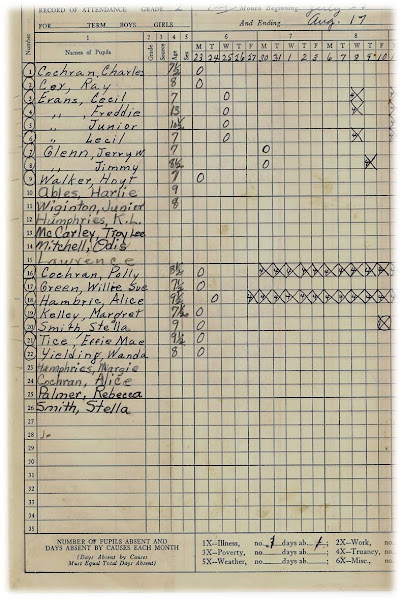 RECORD OF ATTENDANCE GRADE 2 Month Beginning
FOR TERM BOYS GIRLS And Ending Aug. 17
6 7 8
Number Names of Pupils Grade Source Age Sex M T W T F M T W T F M T W T F
23 24 25 26 27 30 31 1 2 3 6 7 8 9 10
1 Cochran, Charles 7½ O
2 Cox, Ray 8 O
3 Evans, Cecil 7 O
4 ,, Freddie 13 O
5 ,, Junior O
6 ,, Lecil 7 O
7 Glenn, Jerry W. 7 O
8 ,, Jimmy 8½ O
9 Walker, Hoyt 7 O
10 Ables, Harlie 9
11 Wiginton, Junior 8
12 Humphries, K.L.
13 McCarley, Troy Lee
14 Mitchell, Odis
15 Lawrence
16 Cochran, Polly 8½ O
17 Green, Willie Sue 7½ O
18 Hambric, Alice 9½ O
19 Kelley, Margret O
20 Smith, Stella 9 O
21 Tice, Effie Mae 9½ O
22 Yielding, Wanda 8 O
23 Humphries, Margie
24 Cochran, Alice
25 Palmer, Rebecca
26 Smith, Stella
27
28
29
30
31
32
33
34
35
NUMBER OF PUPILS ABSENT AND
DAYS ABSENT BY CAUSES EACH MONTH
(Days Absent by Causes
Must Equal Total Days Absent)
1X—Illness, no. days ab. ; 2X—Work,
3X—Poverty, no. days ab. ; 4X—Truancy,
5X—Weather, no. days ab. ; 6X—Misc.,